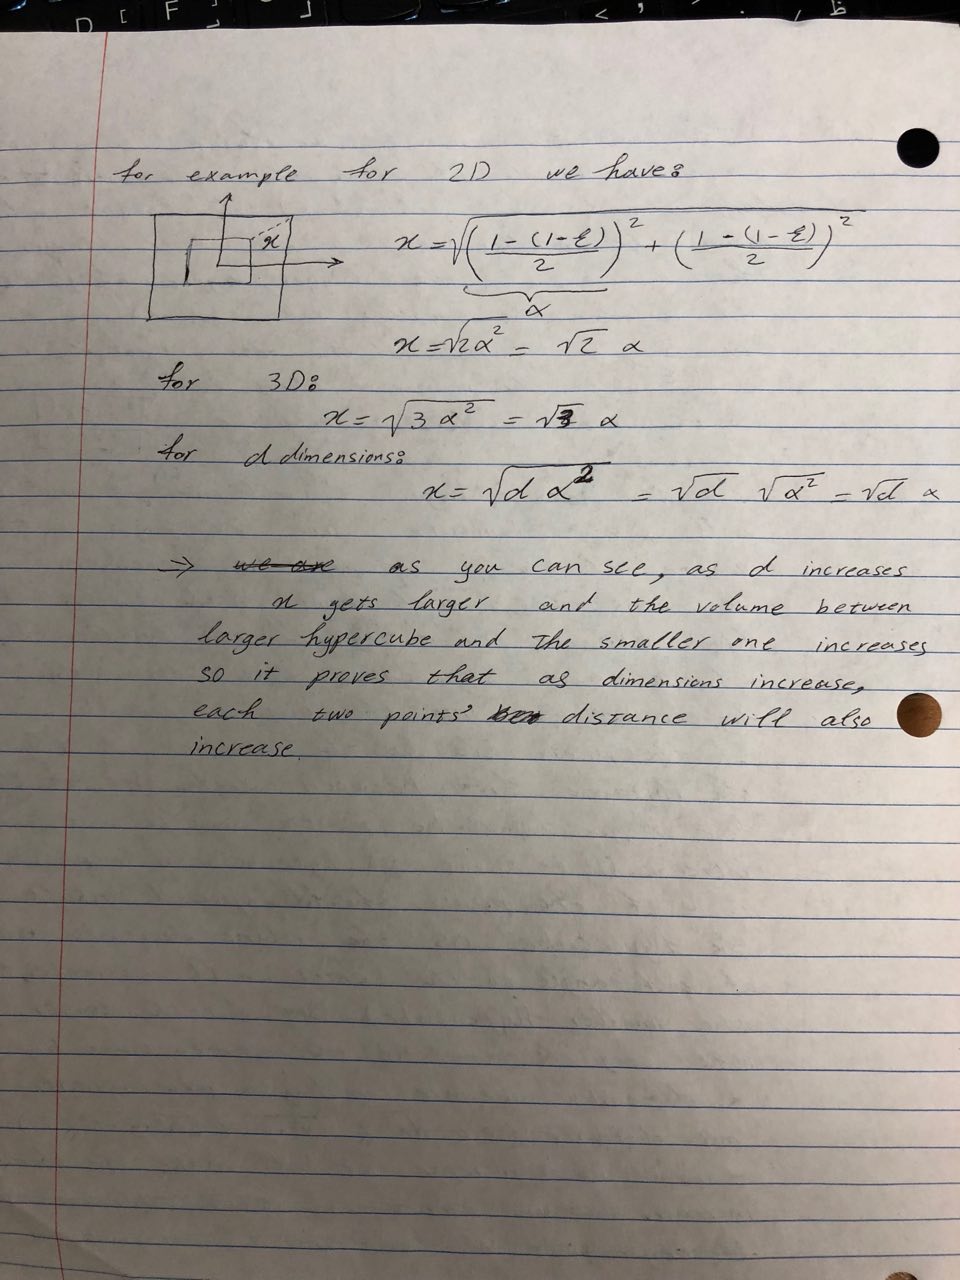 D [ F
for example for 2D we have:
x
x = √((1-(1-ε))/2)² + ((1-(1-ε))/2)²
α
x = √2α² = √2 α
for 3D:
x = √3 α² = √3 α
for d dimensions:
x = √d α² = √d √α² = √d α
⇒ we are as you can see, as d increases
x gets larger and the volume between
larger hypercube and The smaller one increases
so it proves that as dimensions increase,
each two points' distance will also
increase.